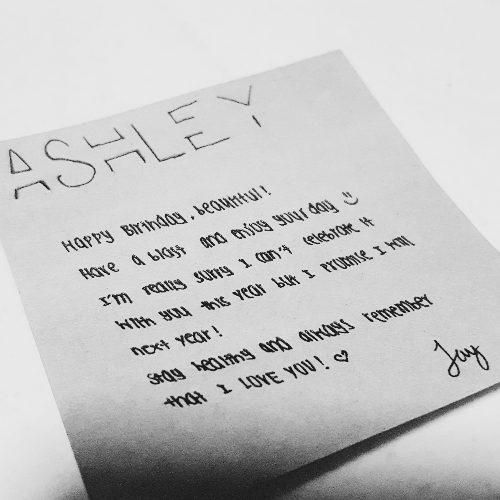 ASHLEY
Happy Birthday, beautiful!
Have a blast and enjoy your day :)
I'm really sorry I can't celebrate it
with you this year but I promise I will
next year!
stay healthy and always remember
that I LOVE YOU! ♡
Jay